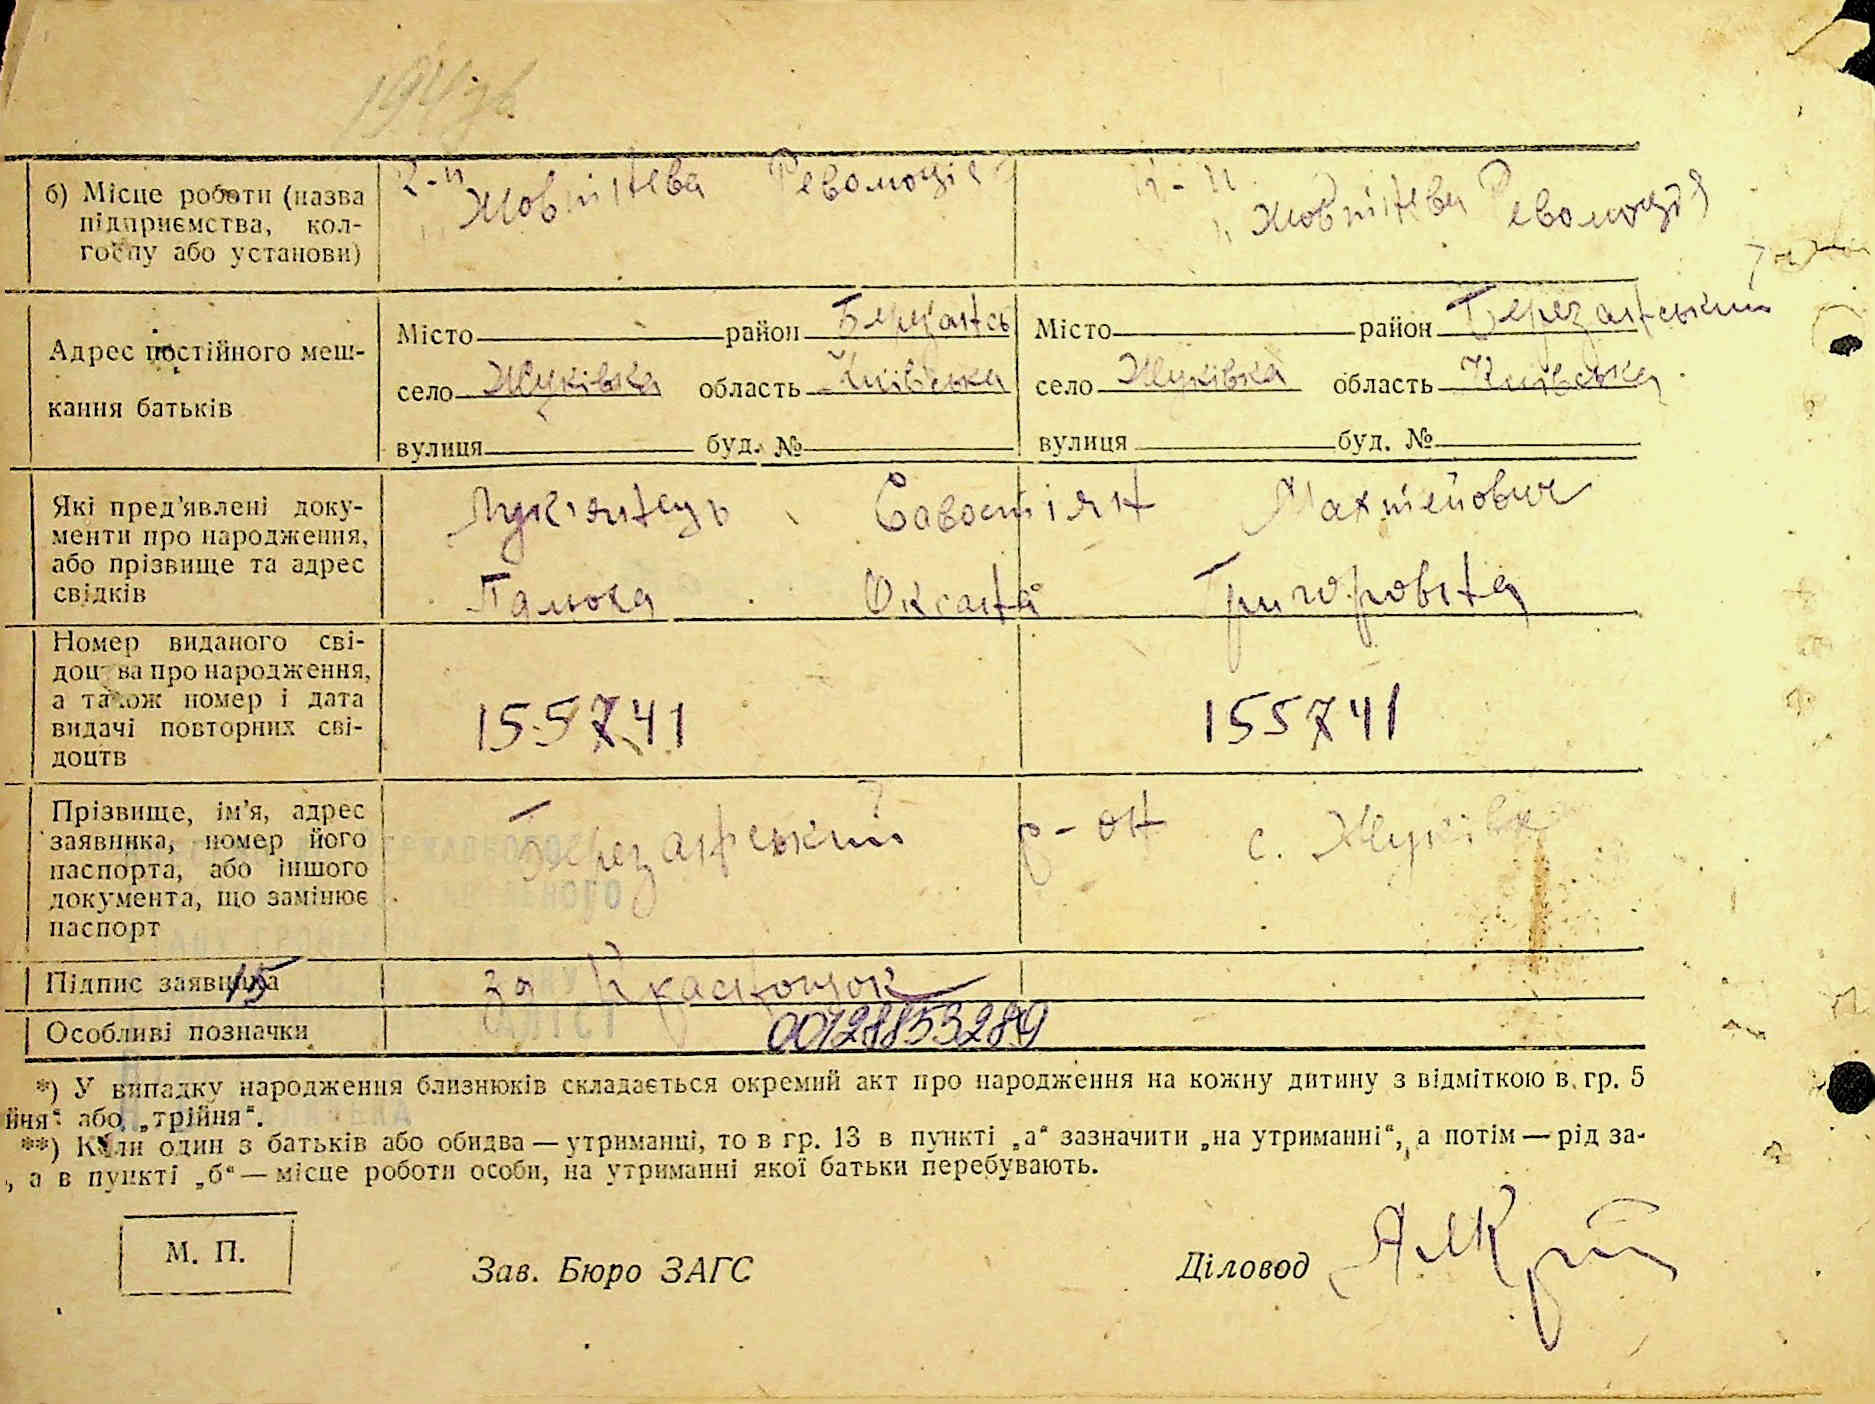 б) Місце роботи (назва підприємства, колгоспу або установи)
к-п „Жовтнева Революція
к-п „Жовтнева Революція
Адрес постійного мешкання батьків
Місто район Березансь
село Жуківка область Київська
вулиця буд. №
Місто район Березанський
село Жуківка область Київська
вулиця буд. №
Які пред'явлені документи про народження, або прізвище та адрес свідків
Лукіянець Савостіян Махтейович
Палюха Оксана Григоровна
Номер виданого свідоцтва про народження, а також номер і дата видачі повторних свідоцтв
155741
155741
Прізвище, ім'я, адрес заявника, номер його паспорта, або іншого документа, що замінює паспорт
Березанський р-он с. Жуківка
Підпис заявника
15
за Краснощок
Особливі позначки
00128853289
*) У випадку народження близнюків складається окремий акт про народження на кожну дитину з відміткою в гр. 5
йня“ або „трійня“.
**) Коли один з батьків або обидва — утриманці, то в гр. 13 в пункті „а“ зазначити „на утриманні“, а потім — рід за-
, а в пункті „б“ — місце роботи особи, на утриманні якої батьки перебувають.
М. П.
Зав. Бюро ЗАГС
Діловод